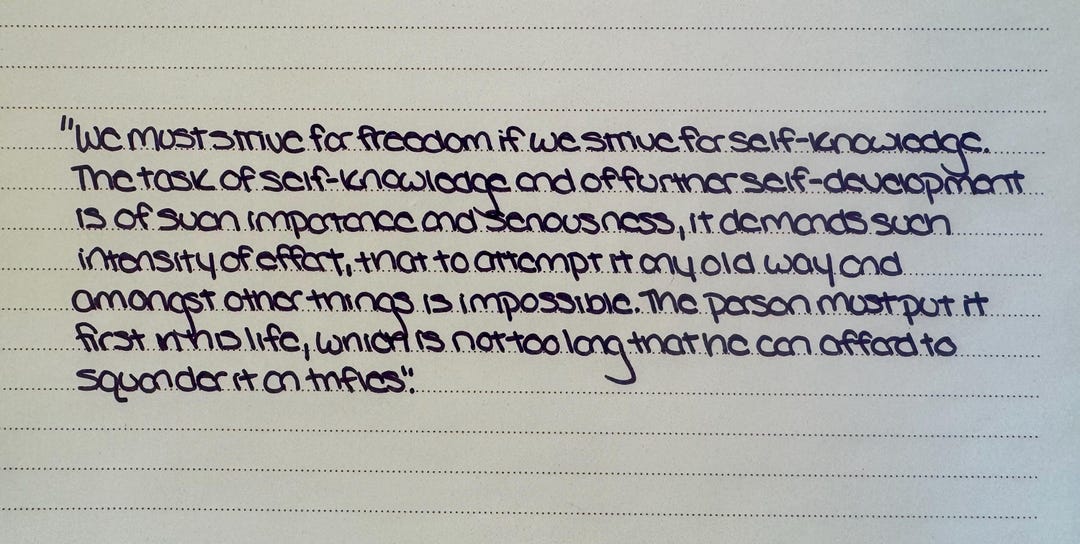 "We must strive for freedom if we strive for self-knowledge.
The task of self-knowledge and of further self-development
is of such importance and seriousness, it demands such
intensity of effort, that to attempt it any old way and
amongst other things is impossible. The person must put it
first in his life, which is not too long that he can afford to
squander it on trifles".